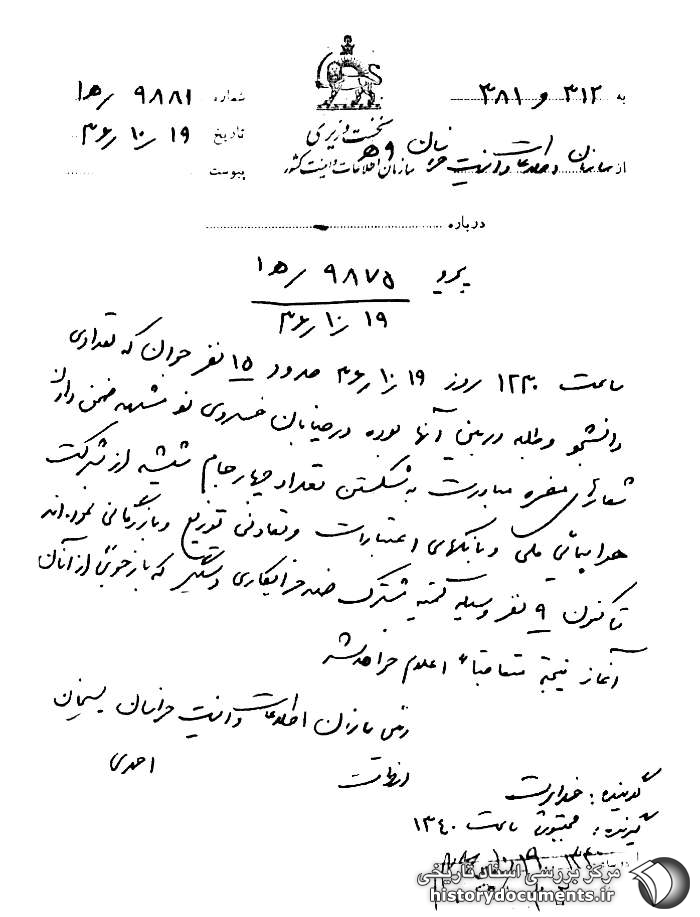 به ۳۱۲ و ۳۸۱
شماره ۹۸۸۱ /ه‍ ۱
نخست وزیری
تاریخ ۱۹ /۱۰ /۳۶
از سازمان اطلاعات و امنیت خراسان ه‍ ۹
سازمان اطلاعات و امنیت کشور
پیوست
درباره
پیرو ۹۸۷۵ /ه‍ ۱
۱۹ /۱۰ /۳۶
ساعت ۱۲۳۰ روز ۱۹ /۱۰ /۳۶ حدود ۱۵ نفر جوان که تعدادی
دانشجو و طلبه در بین آنها بوده در خیابان خسروی نو مشهد ضمن دادن
شعارهای مضره مبادرت به شکستن تعداد چهار جام شیشه از شرکت
هواپیمائی ملی و بانکهای اعتبارات و تعاونی توزیع و بازرگانی نموده‌اند
تاکنون ۹ نفر وسیله کمیته مشترک ضد خرابکاری دستگیر که بازجوئی از آنان
آغاز نتیجه متعاقباً اعلام خواهد شد
رئیس سازمان اطلاعات و امنیت خراسان
احمدی
گوینده: خداپرست
گیرنده: ساعت ۱۳۴۰
مرکز بررسی اسناد تاریخی
historydocuments.ir